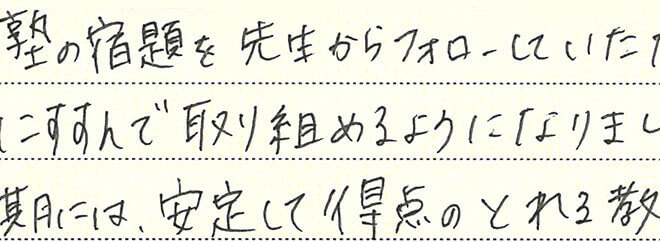 塾の宿題を先生からフォローしていた
にすすんで取り組めるようになりまし
期には、安定して得点のとれる教